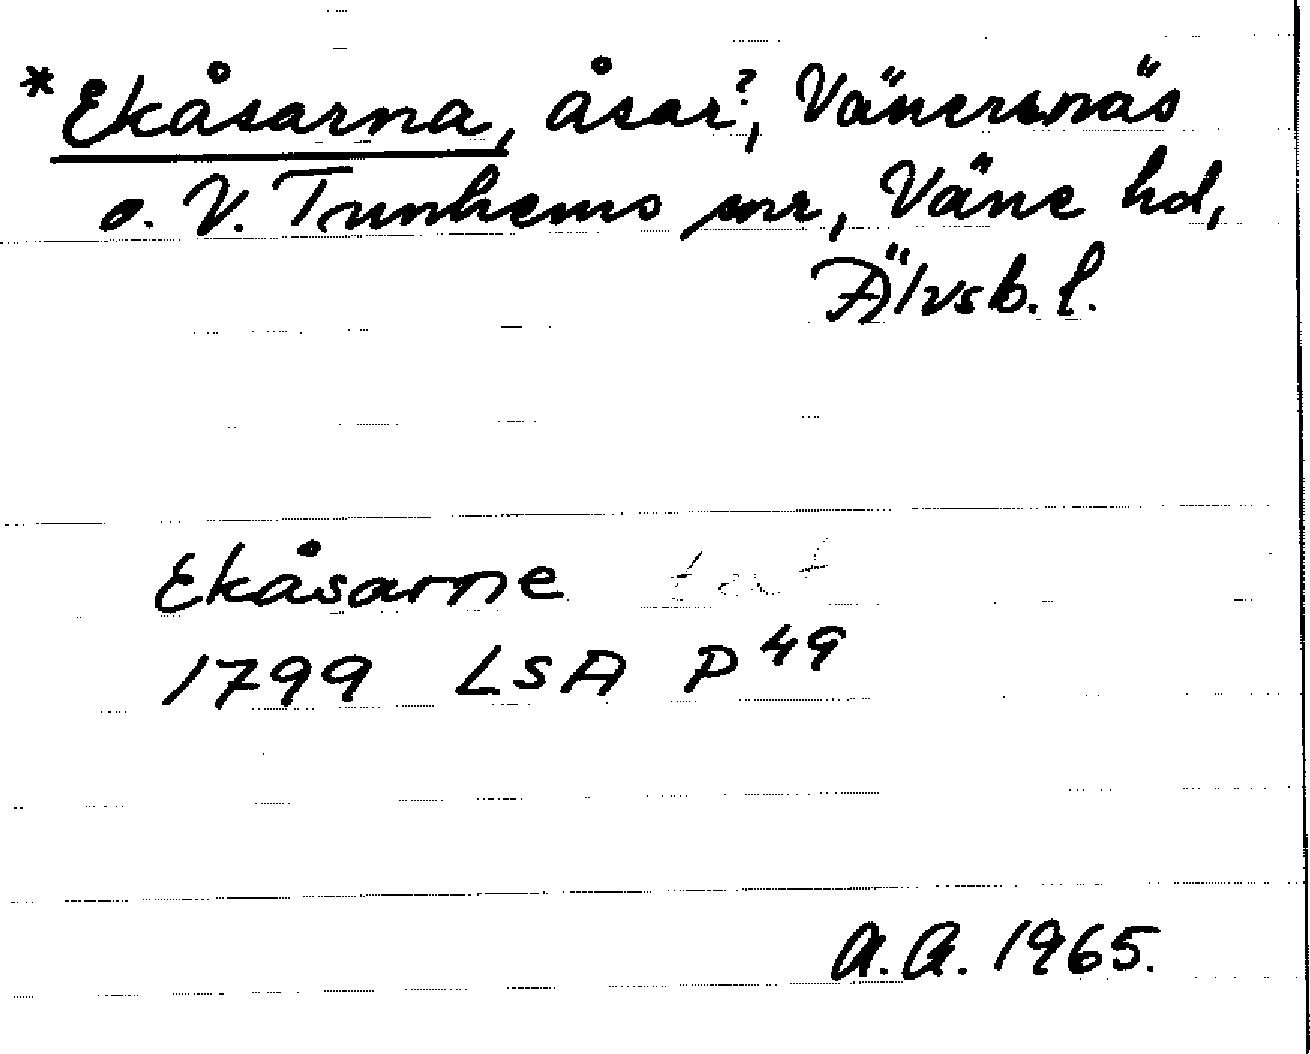 *Ekåsarna, åsar?, Vänersnäs
o. V. Tunhems snr, Väne hd,
Älvsb. l.
Ekåsarne text
1799 LSA P 49
A.A. 1965.